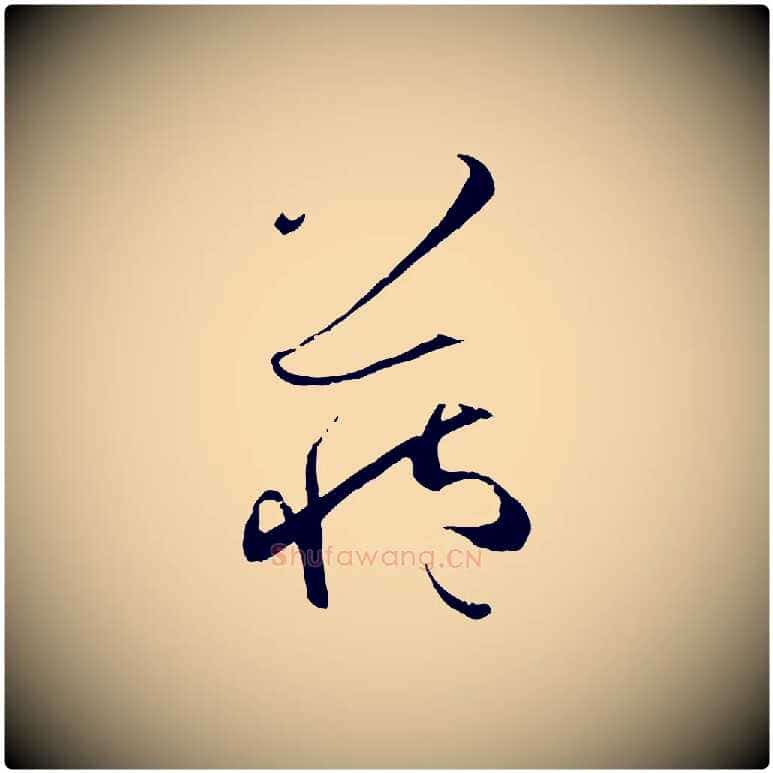 蒋
Shufawang.CN